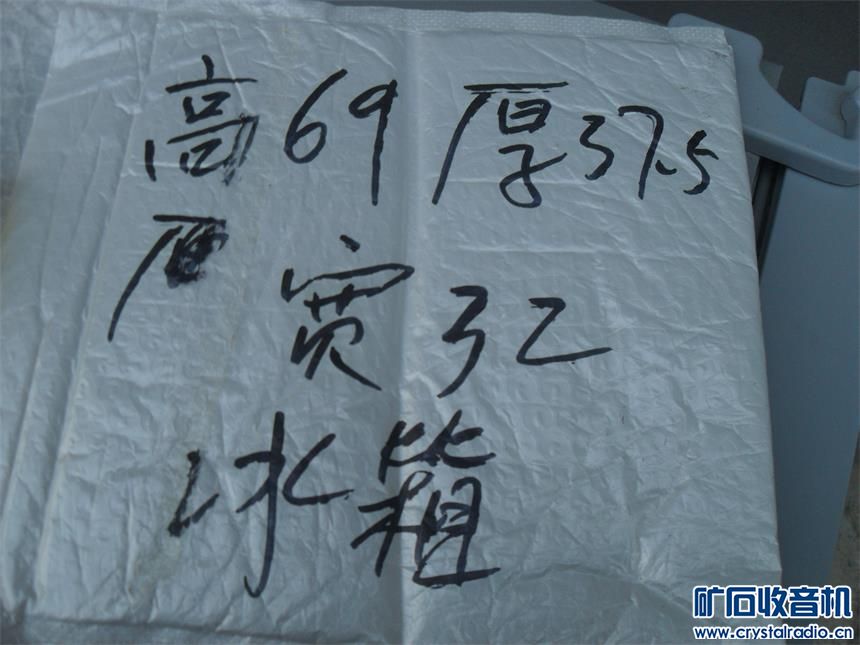 高69 厚37.5
宽32
冰箱
矿石收音机
www.crystalradio.cn